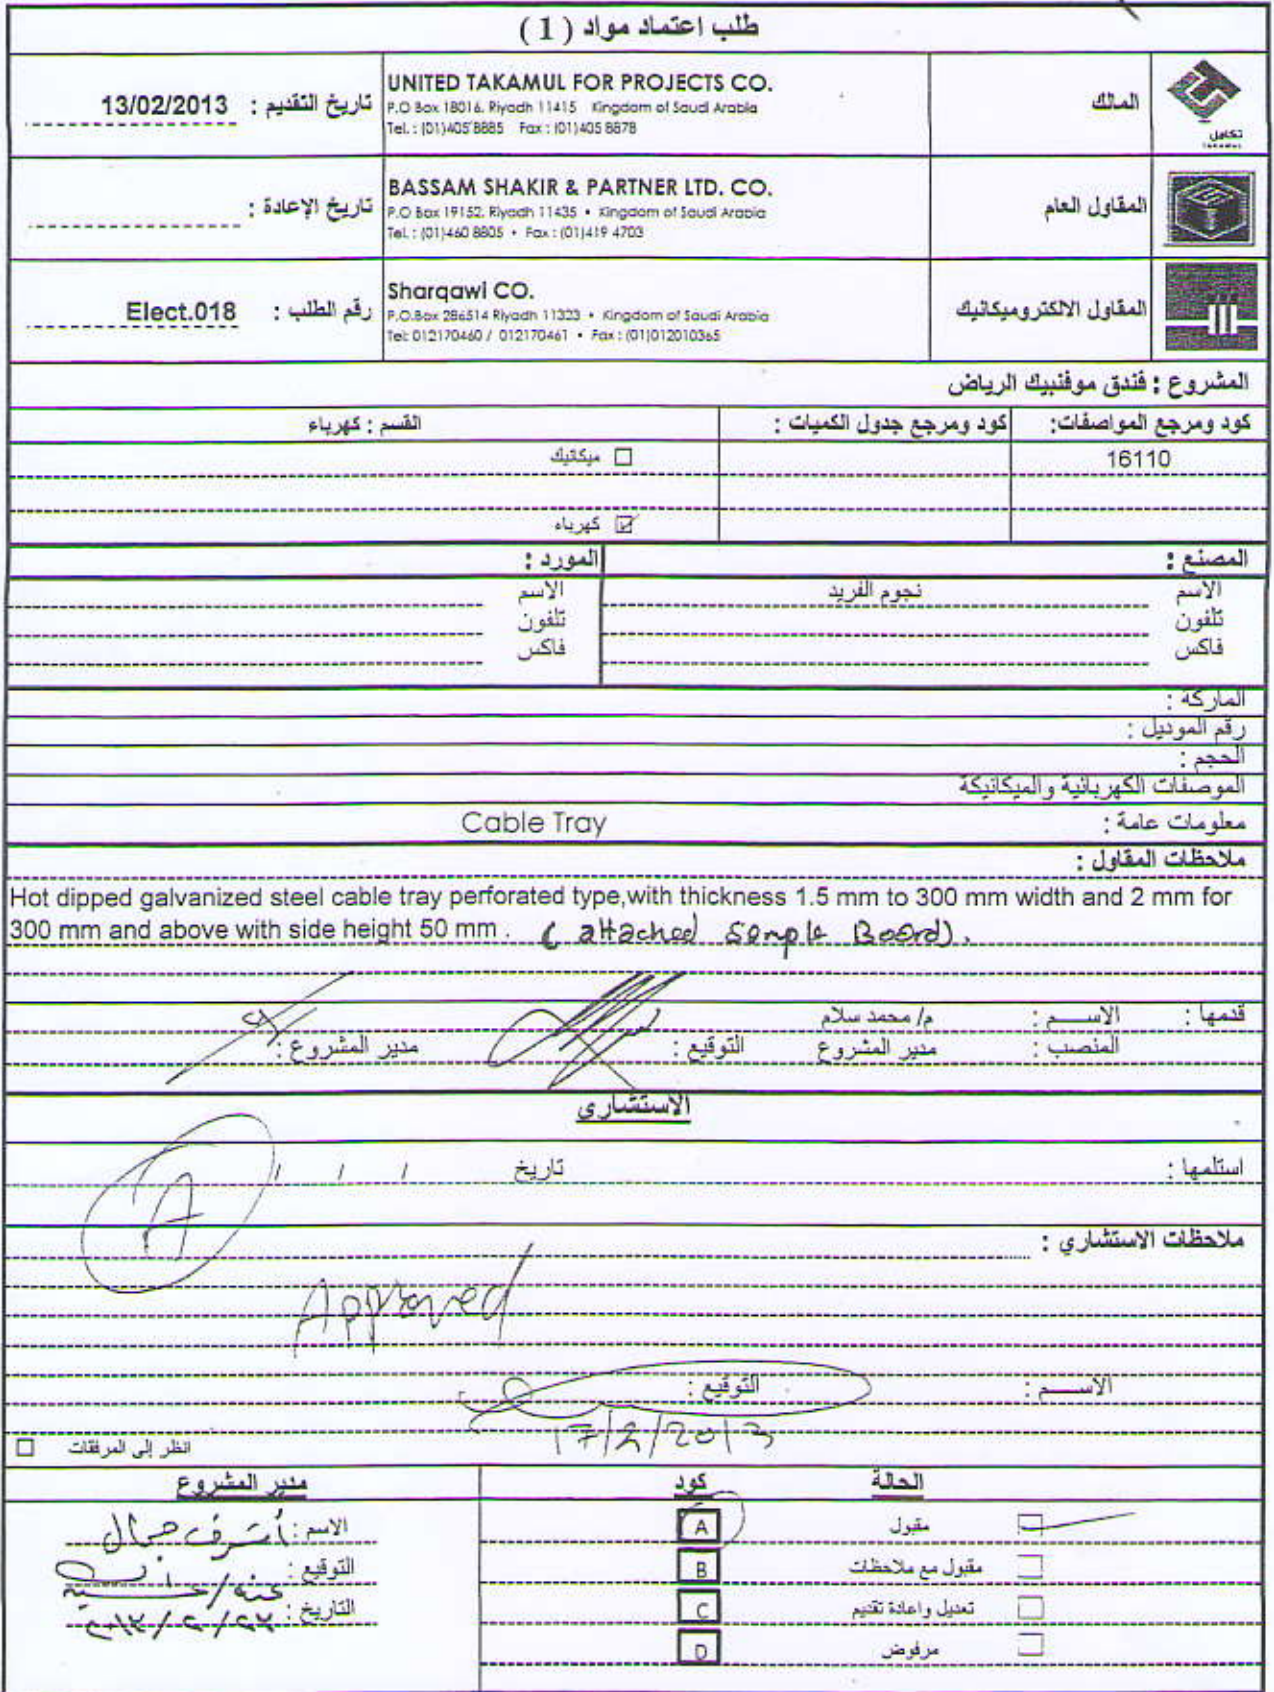 طلب اعتماد مواد ( 1 )
المالك
UNITED TAKAMUL FOR PROJECTS CO.
P.O Box 18016, Riyadh 11415 Kingdom of Saudi Arabia
Tel. : (01)405 8885 Fax : (01)405 8878
تاريخ التقديم : 13/02/2013
تكامل
TAKAMUL
المقاول العام
BASSAM SHAKIR & PARTNER LTD. CO.
P.O Box 19152, Riyadh 11435 • Kingdom of Saudi Arabia
Tel. : (01)460 8805 • Fax : (01)419 4703
تاريخ الإعادة :
المقاول الالكتروميكانيك
Sharqawi CO.
P.O.Box 286514 Riyadh 11323 • Kingdom of Saudi Arabia
Tel: 012170460 / 012170461 • Fax : (01)012010365
رقم الطلب : Elect.018
المشروع : فندق موفنبيك الرياض
كود ومرجع المواصفات: كود ومرجع جدول الكميات : القسم : كهرباء
16110 ☐ ميكانيك
☑ كهرباء
المصنع : المورد :
الاسم نجوم الفريد الاسم
تلفون تلفون
فاكس فاكس
الماركة :
رقم الموديل :
الحجم :
الموصفات الكهربائية والميكانيكة
معلومات عامة : Cable Tray
ملاحظات المقاول :
Hot dipped galvanized steel cable tray perforated type,with thickness 1.5 mm to 300 mm width and 2 mm for
300 mm and above with side height 50 mm . ( attached Sample Board).
قدمها : الاســـم : م/ محمد سلام
المنصب : مدير المشروع التوقيع : مدير المشروع :
الاستشاري
استلمها : تاريخ / / /
A
ملاحظات الاستشاري :
Approved
الاســـم : التوقيع :
17/2/2013
انظر إلى المرفقات ☐
الحالة كود مدير المشروع
مقبول A
مقبول مع ملاحظات B
تعديل واعادة تقديم C
مرفوض D
الاسم : أشرف جمال
التوقيع :
التاريخ : ٢٠١٣/٢/٢٣